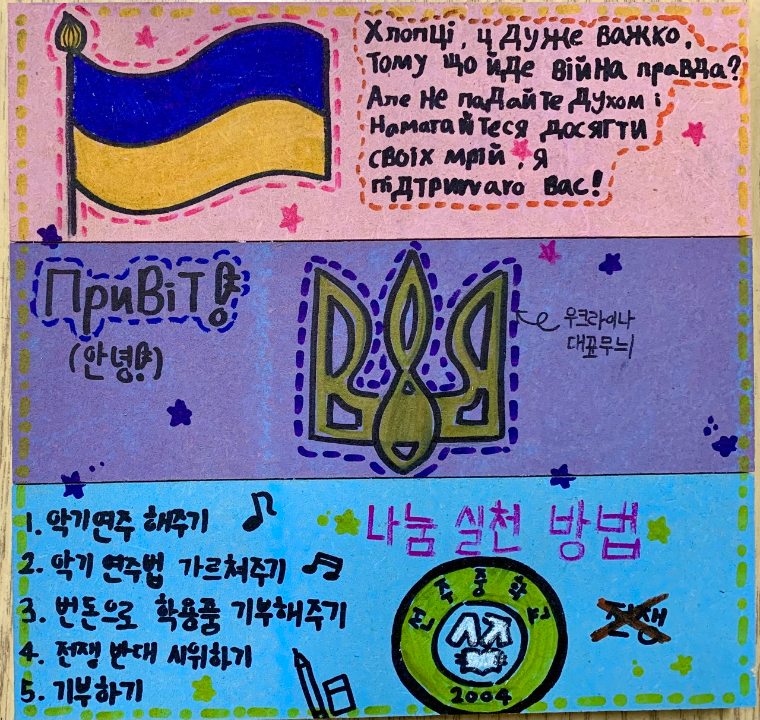 Хлопці, ц дуже важко.
Тому що йде війна правда?
Але не падайте духом і
намагайтеся досягти
своїх мрій, я
підтримуаю вас!
Привіт!
(안녕!)
우크라이나
대표무늬
나눔 실천 방법
1. 악기연주 해주기
2. 악기 연주법 가르쳐주기
3. 번돈으로 학용품 기부해주기
4. 전쟁 반대 시위하기
5. 기부하기
전주중화
2004
전쟁